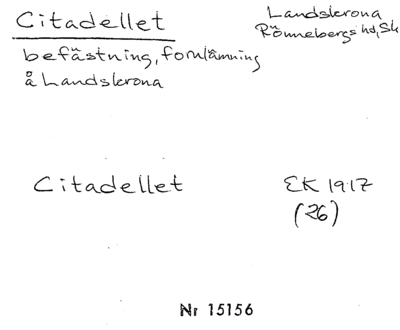 Citadellet
Landskrona
Rönnebergs hd, Sk
befästning, fornlämning
å Landskrona
Citadellet
EK 1917
(26)
Nr 15156